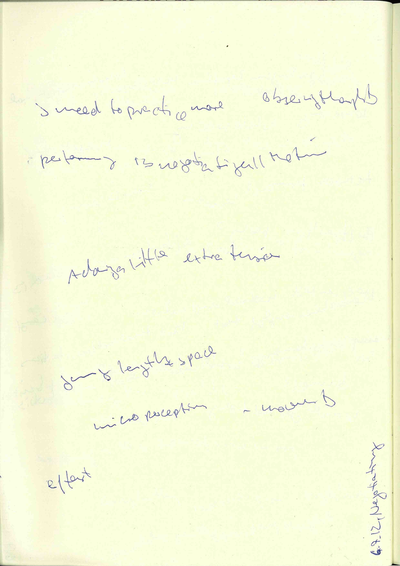 I need to practice more observing thoughts
performing is negotiating all the time
Always little extra tension
giving length & space
microperception - movement
effort
6.7.12, Negotiating